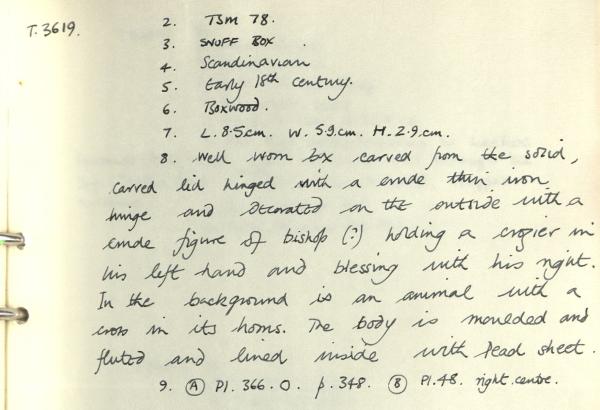 T.3619.
2. TSM 78.
3. SNUFF BOX
4. Scandinavian
5. Early 18th century.
6. Boxwood.
7. L. 8.5cm. W. 5.9cm. H. 2.9cm.
8. Well worn box carved from the solid,
carved lid hinged with a crude thin iron
hinge and decorated on the outside with a
crude figure of bishop (?) holding a crozier in
his left hand and blessing with his right.
In the background is an animal with a
cross in its horns. The body is moulded and
fluted and lined inside with lead sheet.
9. (A) Pl. 366. O. p. 348. (B) Pl. 48. right centre.